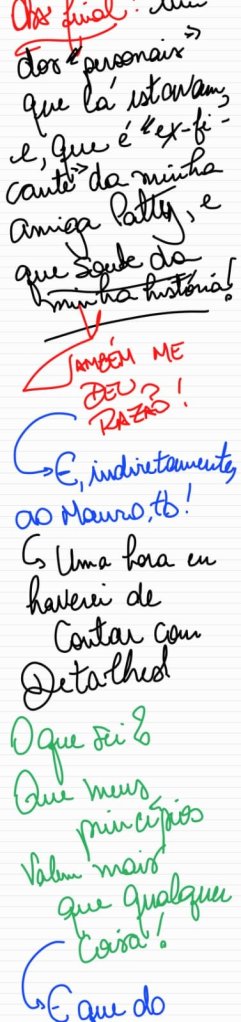 Obs final: Um
dos "personais"
que lá estavam,
e, que é "ex-fi-
cante" da minha
amiga Patty, e
que soube da
minha história!
TAMBÉM ME
DEU
RAZÃO!
E, indiretamente,
ao Mauro, tb!
Uma hora eu
haverei de
Contar com
Detalhes!
O que sei?
Que meus
princípios
Valem mais
que qualquer
Coisa!
E que do